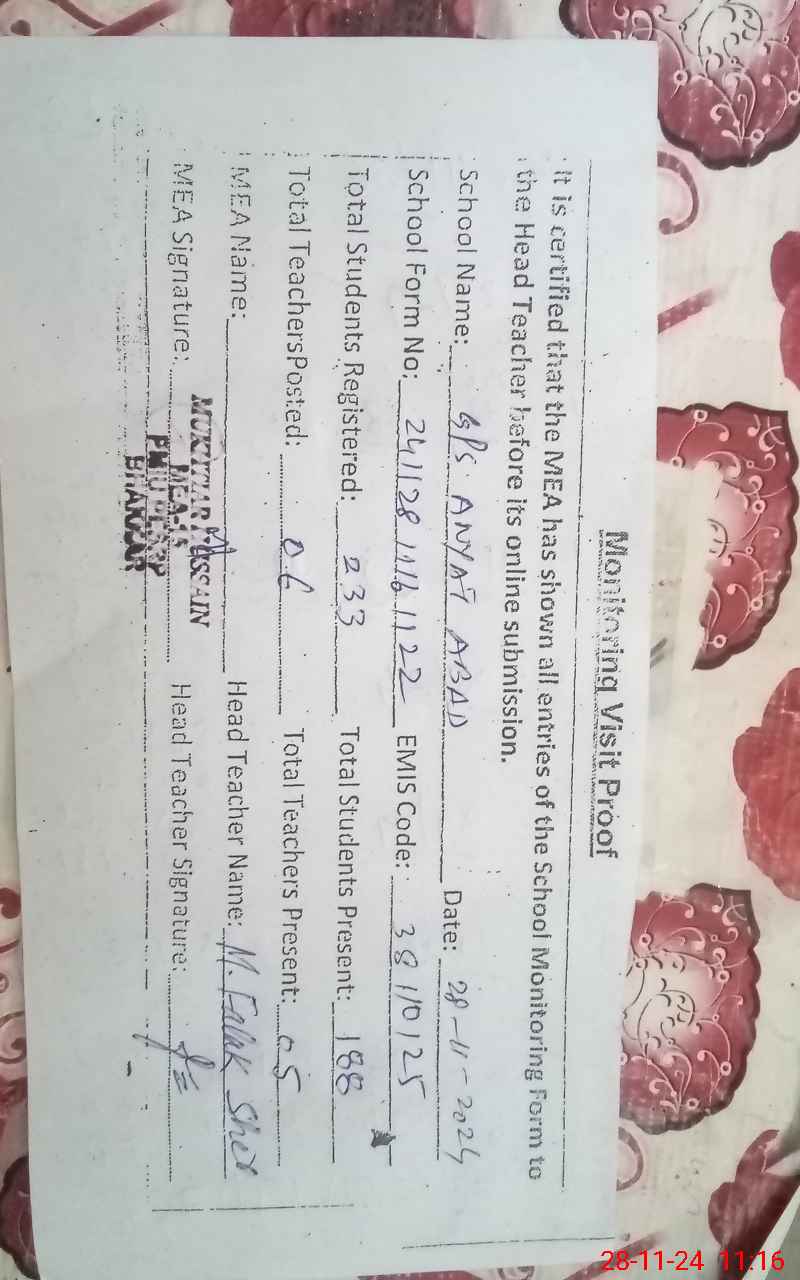 Monitoring Visit Proof
It is certified that the MEA has shown all entries of the School Monitoring Form to
the Head Teacher before its online submission.
School Name: GPS ANYAT ABAD Date: 28-11-2024
School Form No: 241128 1116 1122 EMIS Code: 38110125
Total Students Registered: 233 Total Students Present: 188
Total Teachers Posted: 06 Total Teachers Present: 05
MEA Name: Head Teacher Name: M. Fallak Sher
MUKHTAR HUSSAIN
MEA Signature: Head Teacher Signature:
MEA-15
PMIU PESRP
BHAKKAR
28-11-24 11:16